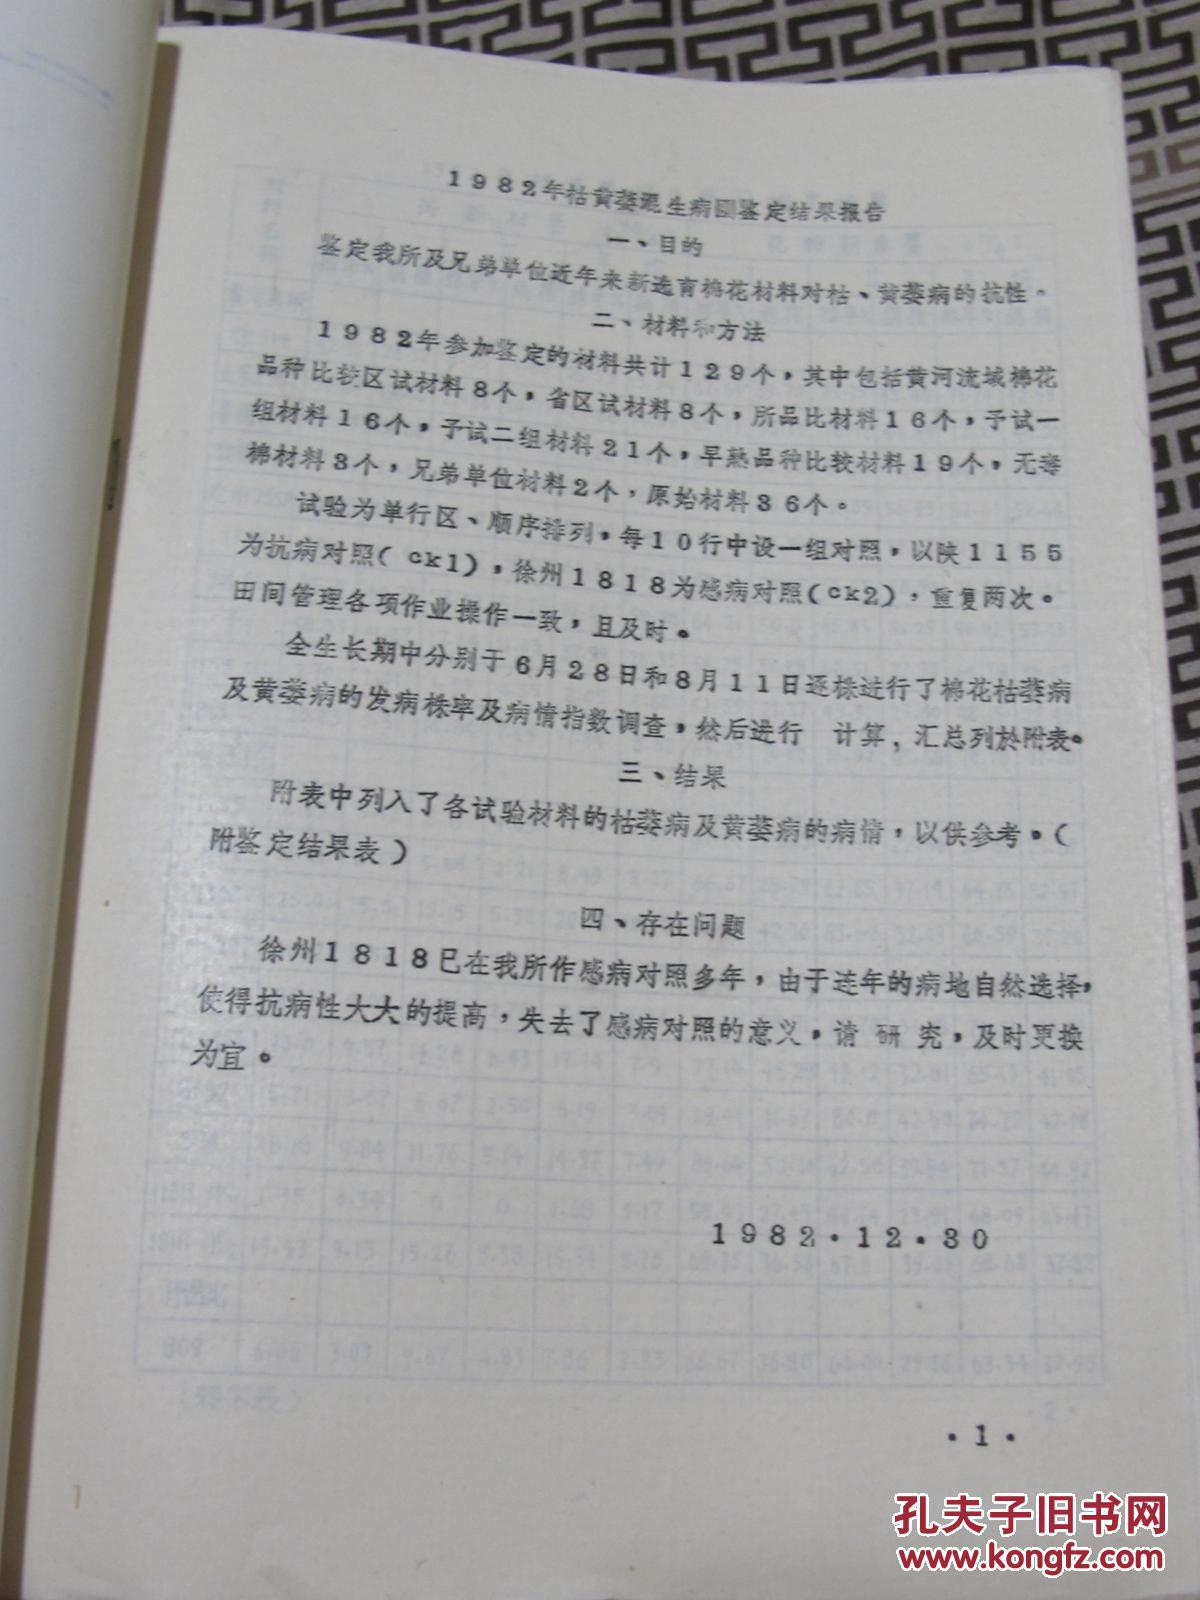 1982年枯黄萎混生病圃鉴定结果报告
一、目的
鉴定我所及兄弟单位近年来新选育棉花材料对枯、黄萎病的抗性。
二、材料和方法
1982年参加鉴定的材料共计129个，其中包括黄河流域棉花
品种比较区试材料8个，省区试材料8个，所品比材料16个，予试一
组材料16个，予试二组材料21个，早熟品种比较材料19个，无毒
棉材料3个，兄弟单位材料2个，原始材料36个。
试验为单行区、顺序排列，每10行中设一组对照，以陕1155
为抗病对照(ck1)，徐州1818为感病对照(ck2)，重复两次。
田间管理各项作业操作一致，且及时。
全生长期中分别于6月28日和8月11日逐株进行了棉花枯萎病
及黄萎病的发病株率及病情指数调查，然后进行 计算，汇总列於附表。
三、结果
附表中列入了各试验材料的枯萎病及黄萎病的病情，以供参考。(
附鉴定结果表)
四、存在问题
徐州1818已在我所作感病对照多年，由于连年的病地自然选择，
使得抗病性大大的提高，失去了感病对照的意义，请 研 究，及时更换
为宜。
1982·12·30
·1·
孔夫子旧书网
www.kongfz.com